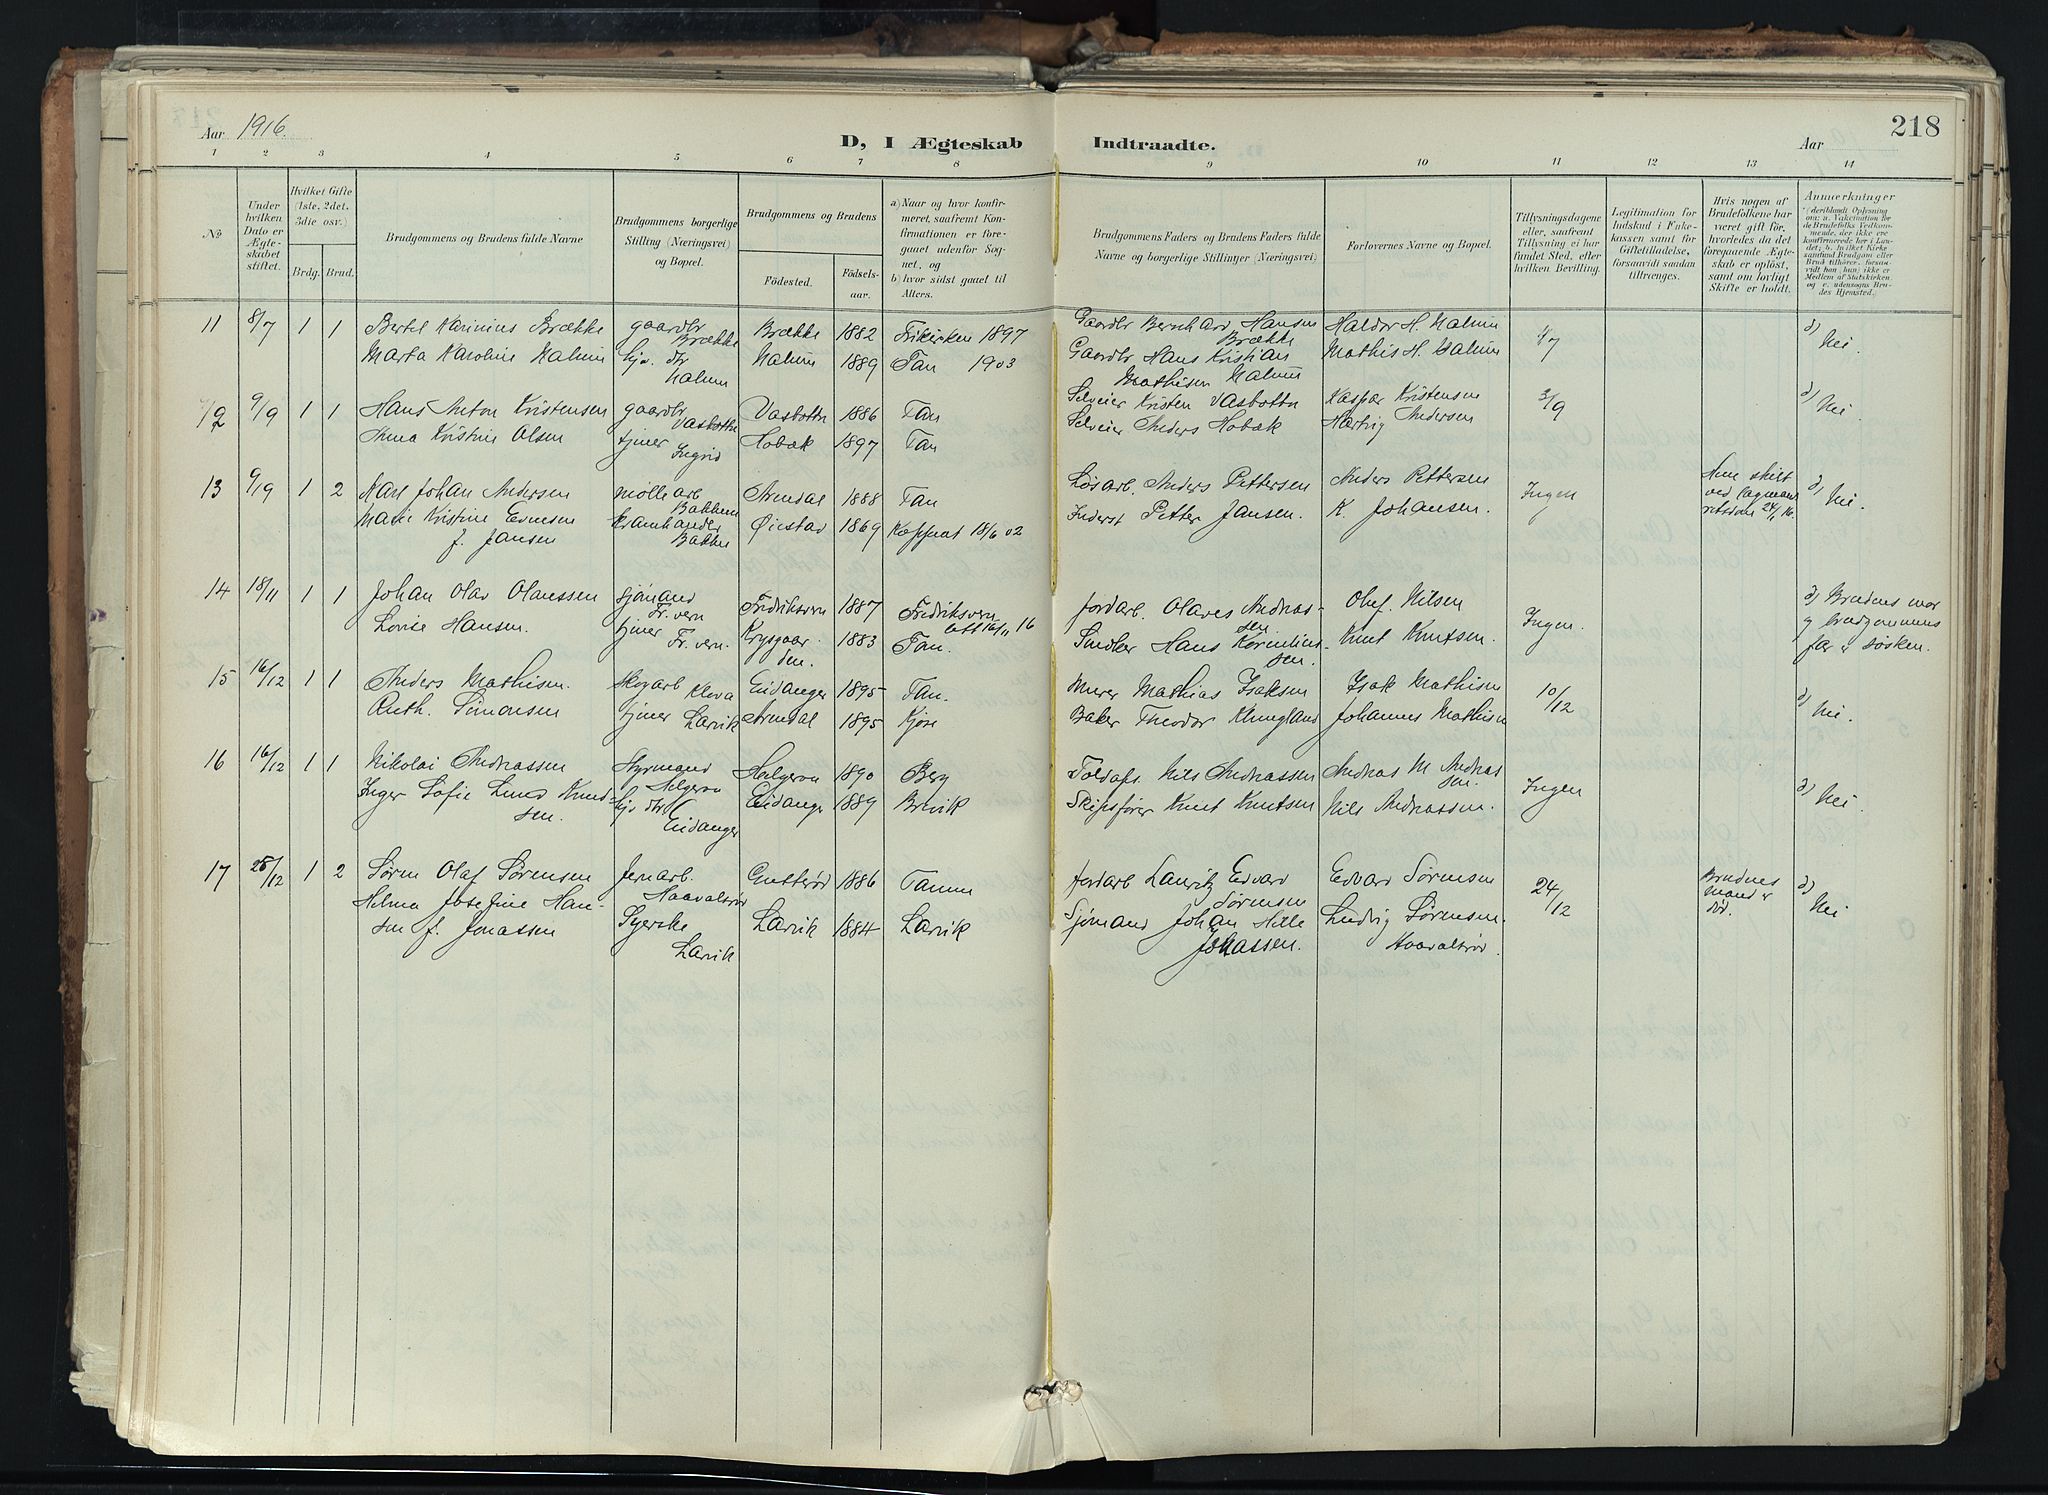 Aar 1916.
D, I Ægteskab Indtraadte.
Aar
218
1 2 3 4 5 6 7 8 9 10 11 12 13 14
No
Under hvilken Dato er Ægteskabet stiftet.
Hvilket Gifte (1ste, 2det, 3die osv.)
Brdg. Brud.
Brudgommens og Brudens fulde Navne
Brudgommens borgerlige Stilling (Næringsvei) og Bopæl.
Brudgommens og Brudens
Fødested. Fødselsaar.
a) Naar og hvor konfirmeret, saafremt Konfirmationen er foregaaet udenfor Sognet, og
b) hvor sidst gaaet til Alters.
Brudgommens Faders og Brudens Faders fulde Navne og borgerlige Stillinger (Næringsvei)
Forlovernes Navne og Bopæl.
Tillysningsdagene eller, saafremt Tillysning ei har fundet Sted, efter hvilken Bevilling.
Legitimation for Indskud i Enkekassen samt for Giftetilladelse, forsaavidt saadan tiltrænges.
Hvis nogen af Brudefolkene har været gift før, hvorledes da det foregaaende Ægteskab er opløst, samt om lovligt Skifte er holdt.
Anmærkninger
11 8/7 1 1 Bertel Karinius Brække gaardbr Brække Brække 1882 Frikirken 1897 Gaardbr Bernhard Hansen Brække Haldor H. Malum 1/7 d) Nei.
Marta Karoline Malum hjv. dtr Malum Malum 1889 Tan 1903 Gaardbr Hans Kristian Mathisen Malum Mathis H. Malum
12 9/9 1 1 Hans Anton Kristensen gaardbr Vasbottn Vasbottn 1886 Tan Selveier Kristen Vasbottn Kaspar Kristensen 3/9 d) Nei.
Anna Kristine Olsen tjener 1897 Tan Selveier Anders Hobæk Hartvig Andersen
13 9/9 1 2 Karl Johan Andersen mølle arb Bakken Arendal 1888 Tan Løsarb. Anders Pettersen Anders Pettersen Ingen d) Nei.
Marie Kristine Evensen f. Jansen Bakken Øiestad 1869 18/6 02 Inderst Petter Jansen. K Johansen.
14 18/11 1 1 Johan Olav Olaussen sjømand Fr. vern Fredriksvern 1887 Fredriksvern 16/11 16 Jordarb. Olaves Andreassen Oluf. Nilsen Ingen. d) Brudens mor og brudgommens far er søsken.
Lovise Hansen. tjener Fr. vern. 1883 Tan. Hans Korneliussen. Knut Knutsen.
15 16/12 1 1 Anders Mathisen. skogarb Klova Eidanger 1895 Tan. Murer Mathias Isaksen Isak Mathisen 10/12 d) Nei.
Ruth. Simonsen tjener Larvik Arendal 1895 Kjose Baker Theodor Johannes Mathisen
16 16/12 1 1 Nikolai Andreassen Styrmand Helgeroa Helgeroa 1890 Berg Toldass. Nils Andreassen Andreas M Andreassen. Ingen d) Nei
Inger Sofie Lund Knudsen. hjv dtr Eidanger Eidanger 1889 Brevik Skipsfører Knut Knutsen Nils Andreassen.
17 25/12 1 2 Søren Olaf Sørensen Jernarb. Haavaltsrød 1886 Tanum Jordarb Lauritz Edvard Sørensen Edvard Sørensen 24/12 Brudens mand er død. d) Nei
Hilma Josefine Hansen f. Jonassen Syerske Larvik Larvik 1884 Larvik Sjømand Johan Hille Johassen. Ludvig Sørensen. Haavaltsrød.